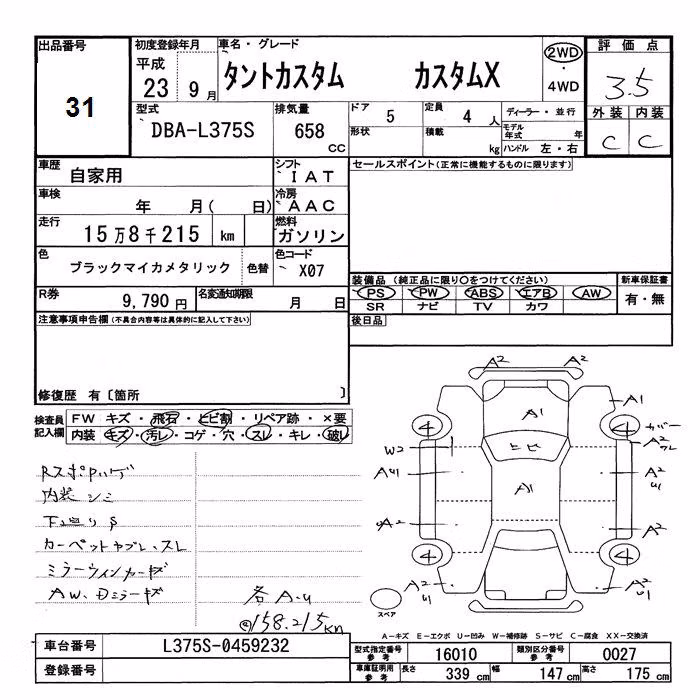 出品番号 初度登録年月 車名・グレード 評価点
平成 23 9月 タントカスタム カスタムX 2WD・4WD 3.5
31
型式 排気量 ドア 5 定員 4人 ディーラー・並行 外装 内装
DBA-L375S 658 CC 形状 積載 kg モデル年式 年 ハンドル 左・右 C C
車歴 自家用 シフト IAT セールスポイント(正常に機能するものに限ります)
車検 年 月( 日) 冷房 AAC
走行 15万8千215 km 燃料 ガソリン
色 ブラックマイカメタリック 色替 色コード X07
装備品 (純正品に限り○をつけてください) 新車保証書
R券 9,790円 名変通知期限 月 日 PS PW ABS エアB AW 有・無
SR ナビ TV カワ
注意事項申告欄(不具合内容等は具体的に記入して下さい) 後日品
修復歴 有〔箇所 〕
検査員記入欄 FW キズ・飛石・ヒビ割・リペア跡・×要
内装 キズ・汚レ・コゲ・穴・スレ・キレ・破レ
内装シミ
カーペットヤブレ、スレ
ミラーウィンカーキズ
AW、Dミラーキズ
各A-U
158.215km
A2 A2
A1 A1
4 4 カバー
A2
W2 ヒビ
AU1 A1 A2 U1
A2 A2
4 4
A2 U1 A2 U1
スペア
A-キズ E-エクボ U-凹み W-補修跡 S-サビ C-腐食 XX-交換済
車台番号 L375S-0459232 型式指定番号参考 16010 類別区分番号参考 0027
登録番号 車庫証明用参考 長さ 339 cm 幅 147 cm 高さ 175 cm